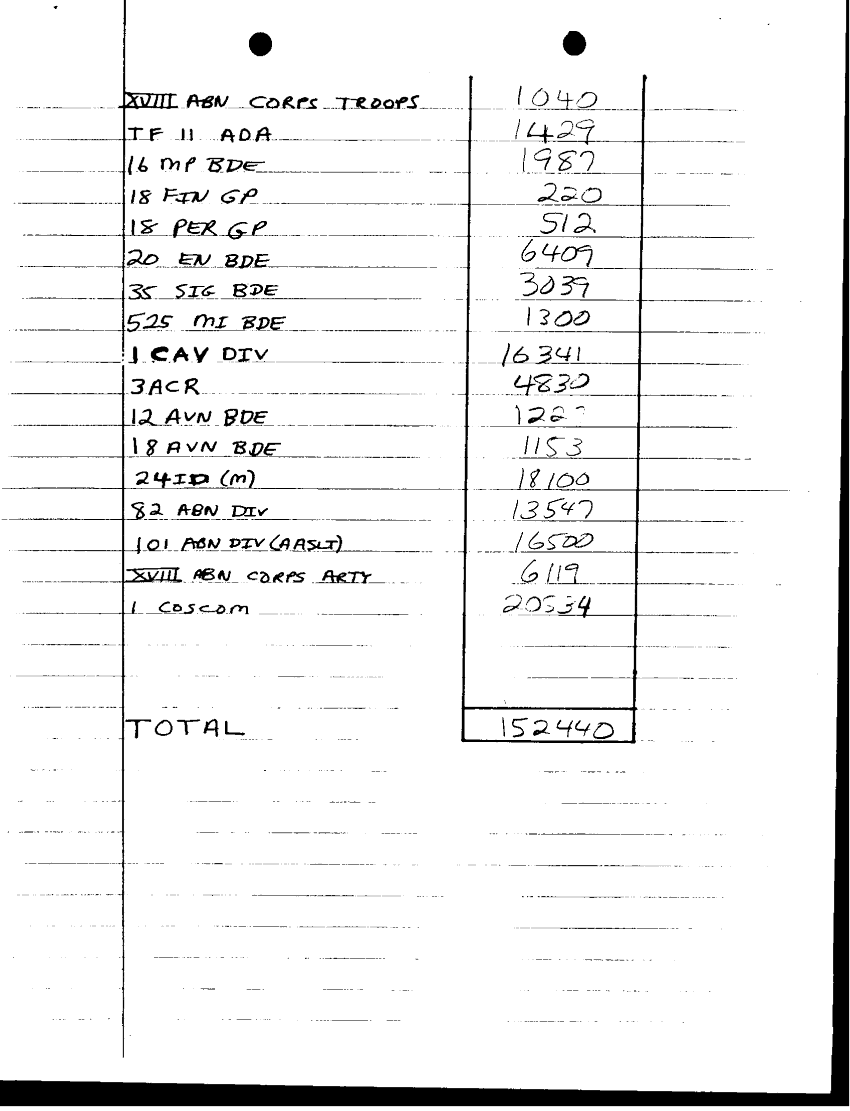 XVIII ABN CORPS TROOPS 1040
TF 11 ADA 1429
16 MP BDE 1987
18 FIN GP 220
18 PER GP 512
20 EN BDE 6409
35 SIG BDE 3039
525 MI BDE 1300
1 CAV DIV 16341
3ACR 4830
12 AVN BDE
18 AVN BDE 1153
24ID (M) 18100
82 ABN DIV 13547
101 ABN DIV (AASLT) 16500
XVIII ABN CORPS ARTY 6119
1 COSCOM 20534
TOTAL 152440